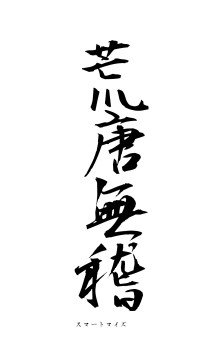 荒唐無稽
スマートマイズ